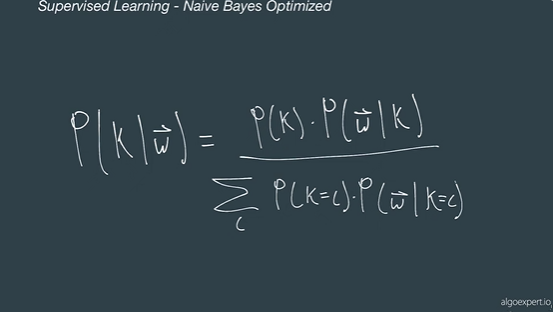 Supervised Learning - Naive Bayes Optimized
P(K|w⃗) = P(K)·P(w⃗|K)
∑ P(K=c)·P(w⃗|K=c)
c
algoexpert.io